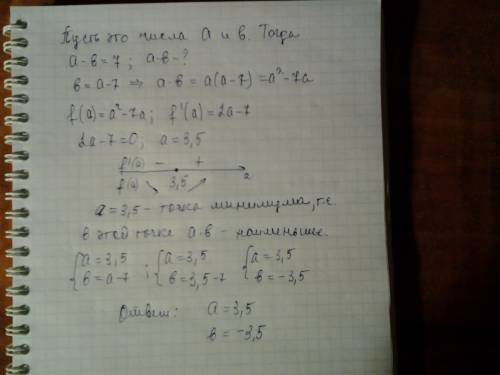 Пусть это числа а и в. Тогда
а - в = 7 ; а·в - ?
в = а-7 ⇒ а·в = а(а-7) = а²-7а
f(a) = a²-7a; f'(a) = 2a-7
2a-7=0; a=3,5
f'(a) - +
f(a) ↘ 3,5 ↗ a
а = 3,5 - точка минимума, т.е.
в этой точке а·в - наименьшее.
{а=3,5 ; {а=3,5 {а=3,5
{в=а-7 {в=3,5-7 {в=-3,5
Ответ: а = 3,5
в = -3,5